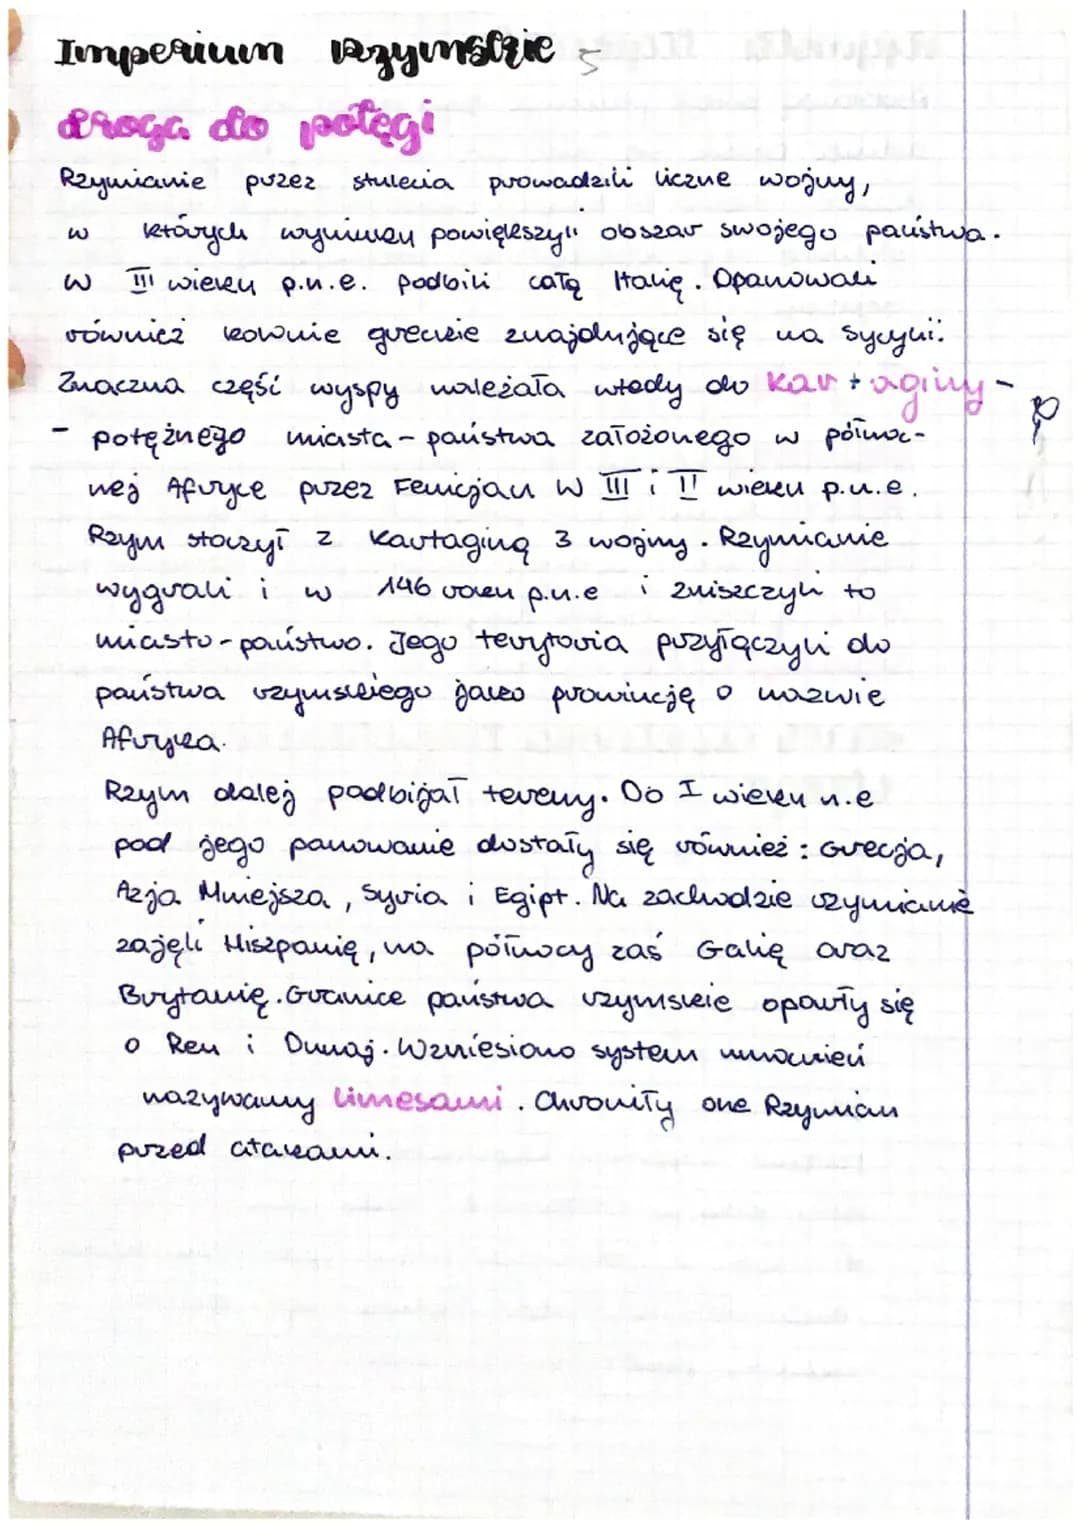 Imperium Rzymskie
droga do potęgi
Rzymianie przez stulecia prowadzili liczne wojny,
w których wyniku powiększyli obszar swojego państwa.
W III wieku p.n.e. podbili całą Italię. Opanowali
również kolonie greckie znajdujące się na Sycylii.
Znaczna część wyspy należała wtedy do Kartaginy -
- potężnego miasta - państwa założonego w północ-
nej Afryce przez Fenicjan W III i II wieku p.n.e.
Rzym stoczył z Kartaginą 3 wojny. Rzymianie
wygrali i w 146 roku p.n.e i zniszczyli to
miasto - państwo. Jego terytoria przyłączyli do
państwa rzymskiego jako prowincję o nazwie
Afryka.
Rzym dalej podbijał tereny. Do I wieku n.e
pod jego panowanie dostały się również: Grecja,
Azja Mniejsza, Syria i Egipt. Na zachodzie rzymianie
zajęli Hiszpanię, na północy zaś Galię oraz
Brytanię. Granice państwa rzymskie oparły się
o Ren i Dunaj. Wzniesiono system umocnień
nazywamy limesami. Chroniły one Rzymian
przed atakami.